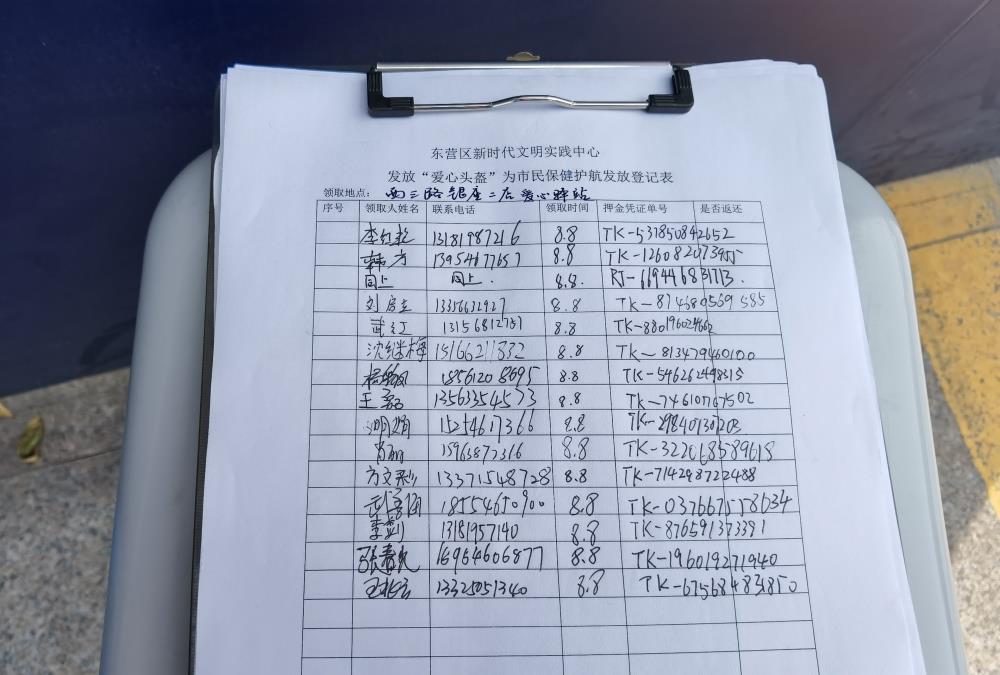 东营区新时代文明实践中心
发放“爱心头盔”为市民保健护航发放登记表
领取地点: 西三路银座二店爱心驿站
序号 领取人姓名 联系电话 领取时间 押金凭证单号 是否返还
13181987216 8.8 TK-531850842652
韩方 13954677657 8.8
同上 同上. 8.8. RJ-669446831713.
13356632927 8.8 TK-874680569585
武红 13156812757 8.8 TK-880196024662
沈继梅 15166211832 8.8 TK-813479460100
18561208695 8.8 TK-546262498315
王磊 13563354573 8.8 TK-74610767502
15254617366 8.8
15963872316 8.8 TK-322068589618
13371548728 8.8 TK-714298722488
8.8
李剑 13181957140 8.8 TK-876591373391
16954606877 8.8 TK-196019271940
13325051340 8.8 TK-675684831850